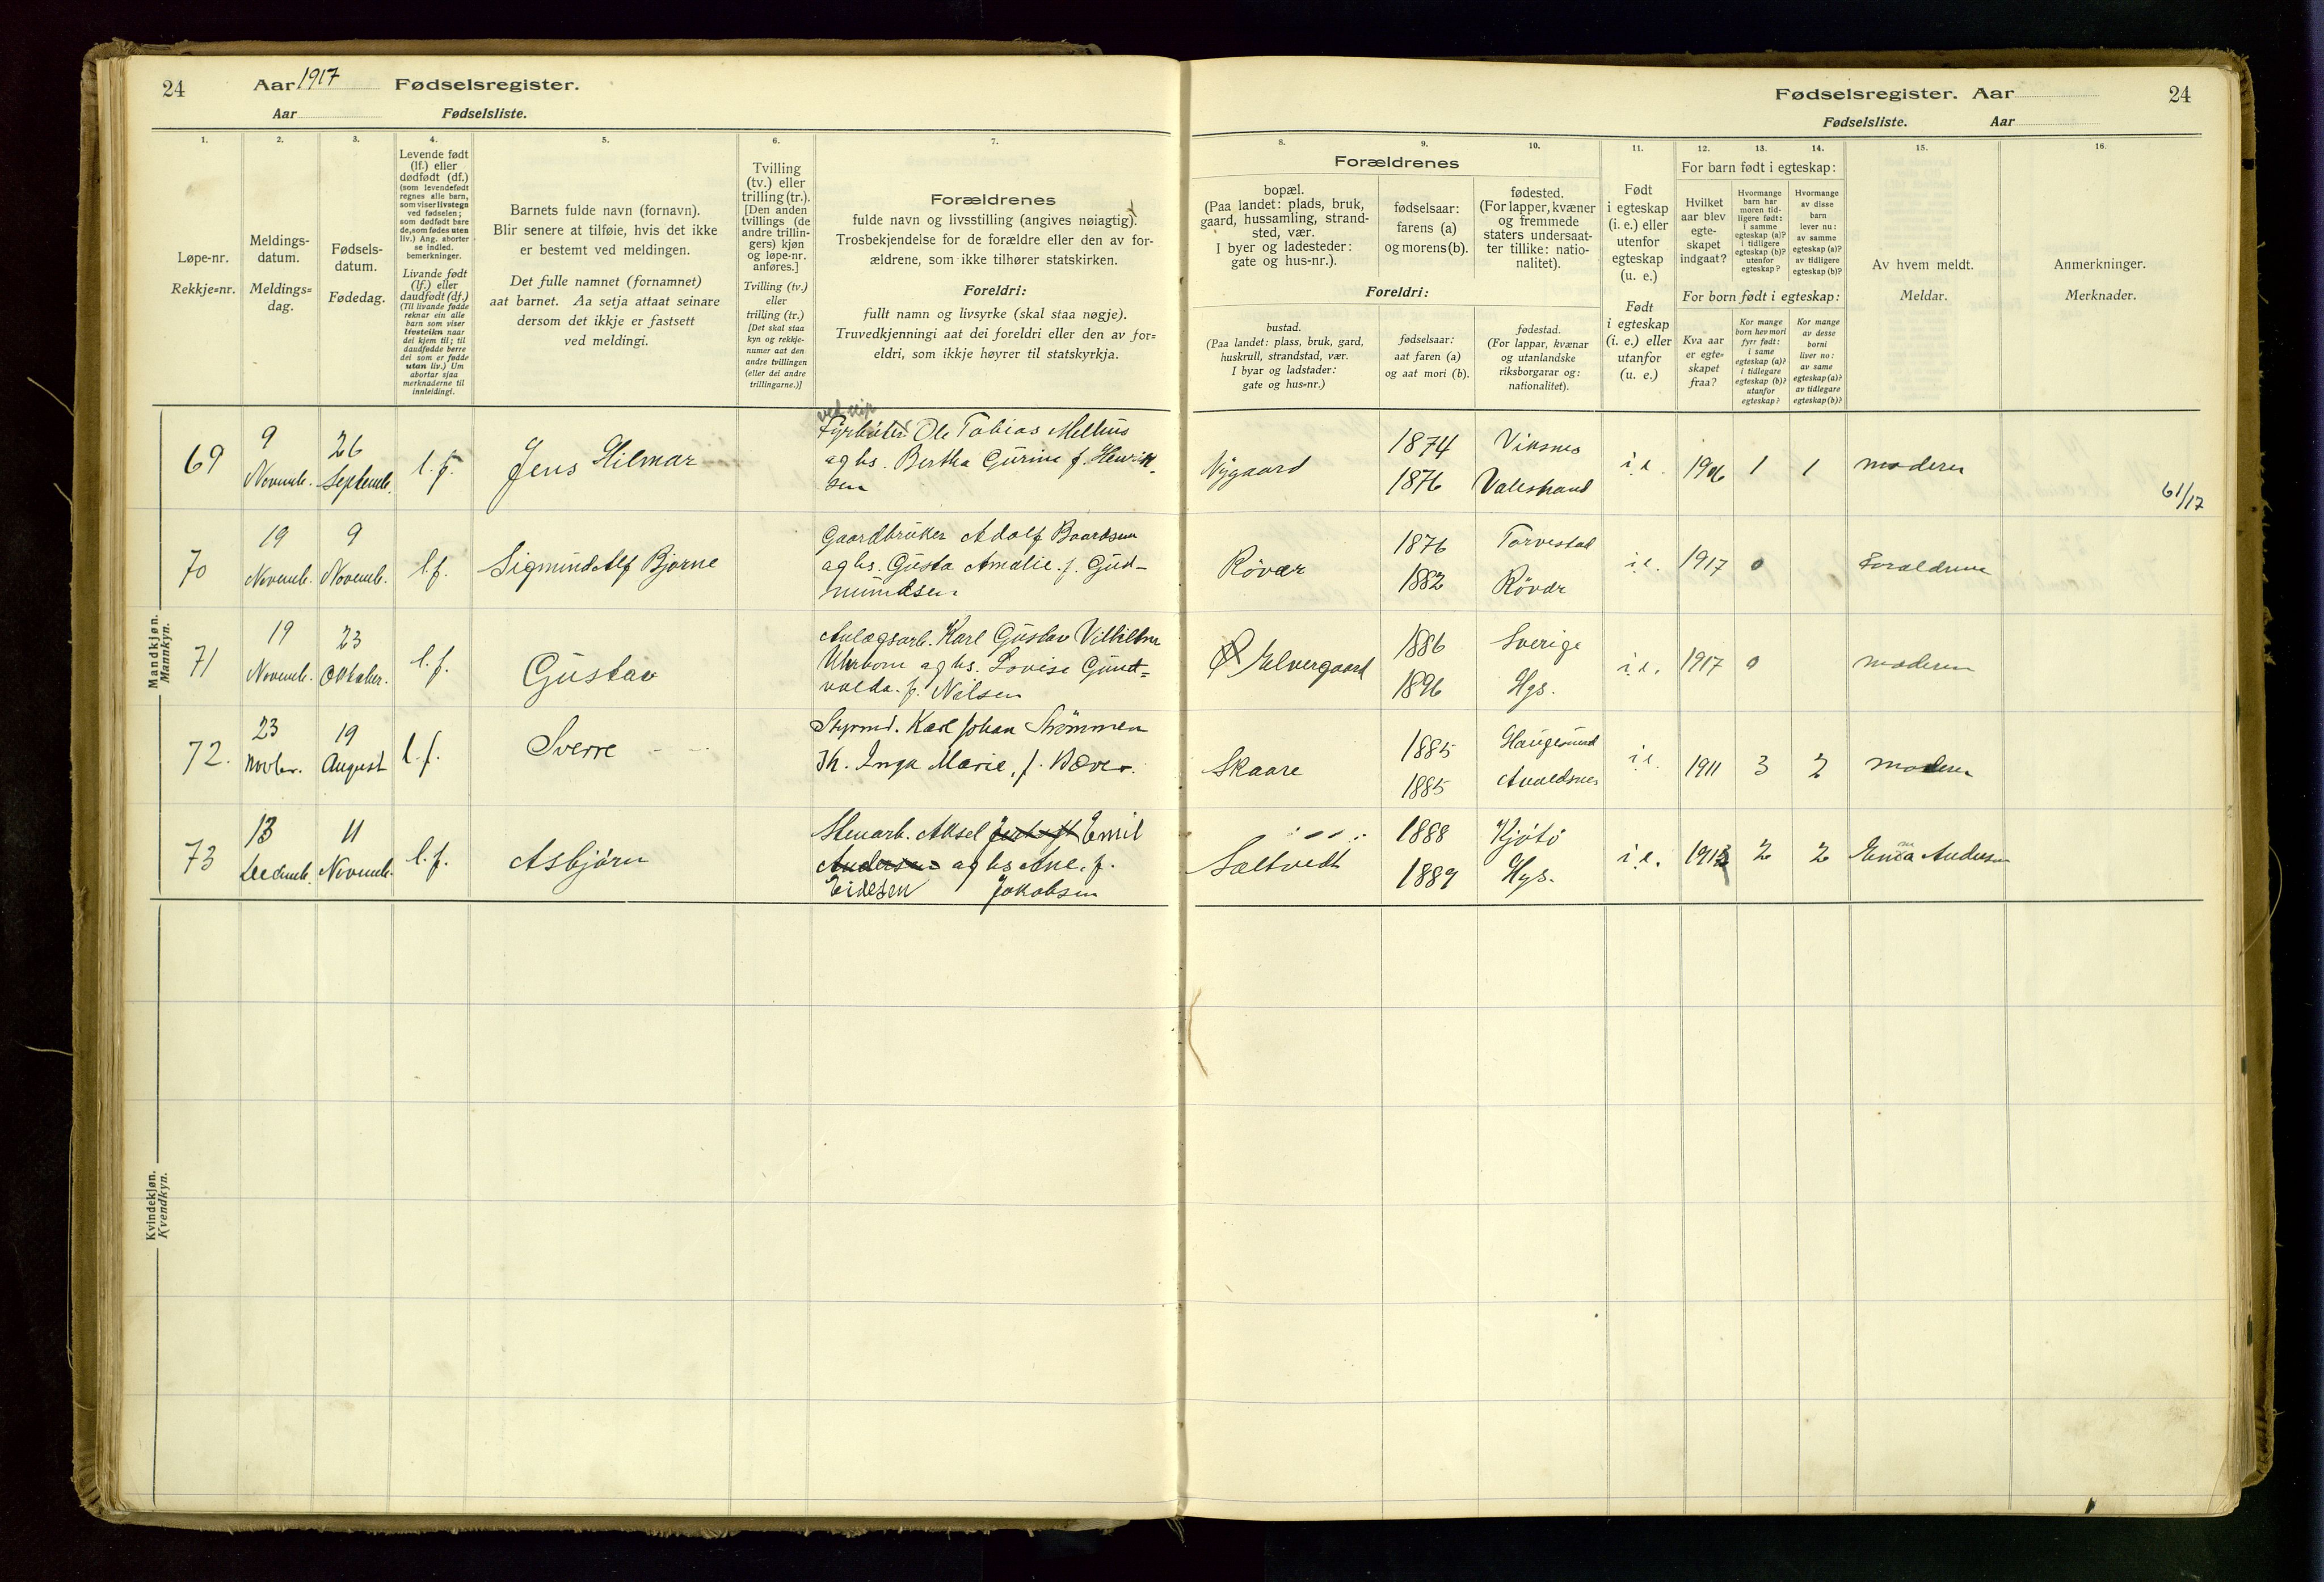 24 Aar 1917 Fødselsregister.
Aar Fødselsliste.
Fødselsregister. Aar 24
Fødselsliste. Aar
1. 2. 3. 4. 5. 6. 7.
Løpe-nr.
Rekkje=nr.
Meldings-
datum.
Meldings=
dag.
Fødsels-
datum.
Fødedag.
Levende født
(lf.) eller
dødfødt (df.)
(som levendefødt
regnes alle barn,
som viser livstegn
ved fødselen;
som dødfødt bare
de, som fødes uten
liv.) Ang. aborter
se indled.
bemerkninger.
Livande født
(lf.) eller
daudfødt (df.)
(Til livande fødde
reknar ein alle
barn som viser
livsteikn naar
dei kjem til; til
daudfødde berre
dei som er fødde
utan liv.) Um
abortar sjaa
merknaderne til
innleidingi.
Barnets fulde navn (fornavn).
Blir senere at tilføie, hvis det ikke
er bestemt ved meldingen.
Det fulle namnet (fornamnet)
aat barnet. Aa setja attaat seinare
dersom det ikkje er fastsett
ved meldingi.
Tvilling
(tv.) eller
trilling (tr.).
[Den anden
tvillings (de
andre trillin-
gers) kjøn
og løpe-nr.
anføres.]
Tvilling (tv.)
eller
trilling (tr.)
[Det skal staa
kyn og rekkje-
numer aat den
andre tvillingen
(eller dei andre
trillingarne.)]
Forældrenes
fulde navn og livsstilling (angives nøiagtig).
Trosbekjendelse for de forældre eller den av for-
ældrene, som ikke tilhører statskirken.
Foreldri:
fullt namn og livsyrke (skal staa nøgje).
Truvedkjenningi aat dei foreldri eller den av for=
eldri, som ikkje høyrer til statskyrkja.
8. 9. 10. 11. 12. 13. 14. 15. 16.
Forældrenes
bopæl.
(Paa landet: plads, bruk,
gaard, hussamling, strand-
sted, vær.
I byer og ladesteder:
gate og hus-nr.).
fødselsaar:
farens (a)
og morens (b).
fødested.
(For lapper, kvæner
og fremmede
staters undersaat-
ter tillike: natio-
nalitet).
Foreldri:
bustad.
(Paa landet: plass, bruk, gard,
huskrull, strandstad, vær.
I byar og ladstader:
gate og hus=nr.)
fødselsaar:
aat faren (a)
og aat mori (b).
fødestad.
(For lappar, kvænar
og utanlandske
riksborgarar og:
nationalitet).
Født
i egteskap
(i. e.) eller
utenfor
egteskap
(u. e.)
Født
i egteskap
(i. e.) eller
utanfor
(u. e.)
For barn født i egteskap:
Hvilket
aar blev
egte-
skapet
indgaat?
Hvormange
barn har
moren tid-
ligere født:
i samme
egteskap (a)?
i tidligere
egteskap (b)?
utenfor
egteskap?
Hvormange
av disse
barn
lever nu:
av samme
egteskap (a)?
av tidligere
egteskap (b)?
For born født i egteskap:
Kva aar
er egte=
skapet
fraa?
Kor mange
born hev mori
fyrr født:
i same
egteskap (a)?
i tidlegare
egteskap (b)?
utanfor
egteskap?
Kor mange
av desse
borni
liver no:
av same
egteskap (a)?
av tidlegare
egteskap (b)?
Av hvem meldt.
Meldar.
Anmerkninger.
Merknader.
Mandkjøn.
Mannkyn.
69 9 Novemb. 26 Septemb. l.f. Jens Hilmar
Fyrbøter Ole Tobias Melhus
og hs. Bertha Gurine f. Henrik-
sen
Nygaard 1874 Viksnes i.e. 1906 1 1 moderen
1876 Valestrand
61/17
70 19 Novemb. 9 Novemb. l.f. Sigmund Alf Bjarne
Gaardbruker Adolf Baardsen
og hs. Gusta Amalie. f. Gud-
mundsen.
Røvær 1876 Torvestad i.e. 1917 0 Forældrene
1882 Røvær
71 19 Novemb. 23 Oktober. l.f. Gustav
Anlægsarb. Karl Gustav Vilhelm
Uhrbom og hs. Lovise Gunt=
valda. f. Nilsen
Elvergaard 1886 Sverige i.e. 1917 0 moderen
1896 Hgs.
72. 23 Novbr. 19 August l.f. Sverre
Styrmd. Karl Johan Strømmen
Th. Inga Marie, f. Bæver.
Skaare 1885 Haugesund i.e. 1911 3 2 moderen
1885 Avaldsnes
73 13 Decemb. 11 Novemb. l.f. Asbjørn
Stenarb. Aksel Emil
Andersen og hs Ane. f.
Eidesen Jakobsen
Saltvedt 1888 Kjøtø i.e. 1913 2 2 Emma Andersen
1889 Hgs.
Kvindekjøn.
Kvendkyn.